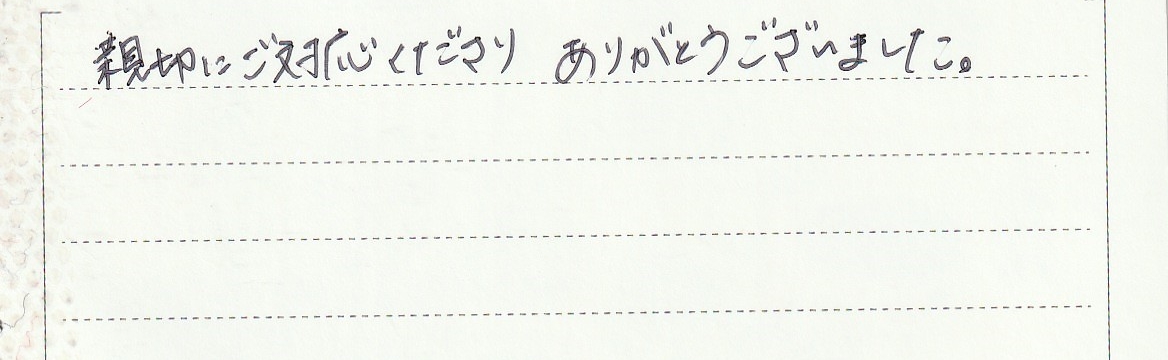 親切にご対応くださり ありがとうございました。